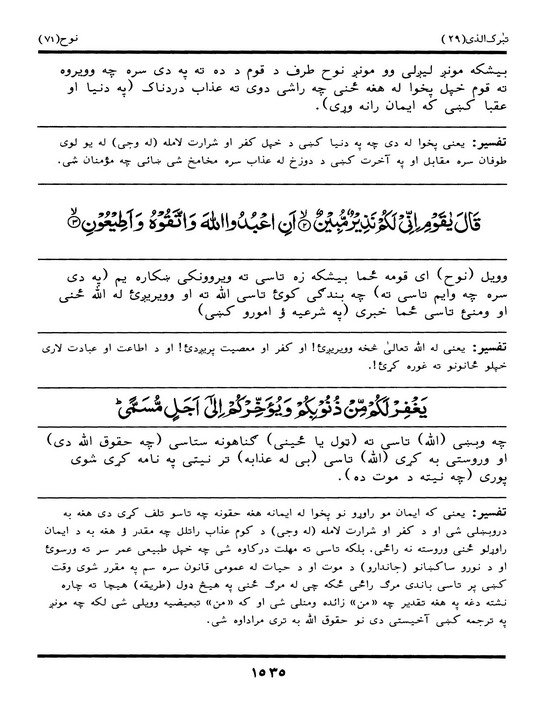 تبٰرک الذي (۲۹) نوح (۷۱)
بېشکه مونږ لېږلى وو مونږ نوح طرف د قوم د ده ته په دى سره چه وويروه
ته قوم خپل پخوا له هغه ځنى چه راشى دوى ته عذاب دردناک (په دنيا او
عقبا کښى که ايمان رانه وړى).
تفسير: يعنى پخوا له دى چه په دنيا کښى د خپل کفر او شرارت لامله (له وجى) له يو لوى
طوفان سره مقابل او په آخرت کښى د دوزخ له عذاب سره مخامخ شى ښائى چه مؤمنان شى.
قَالَ يٰقَوْمِ اِنِّىْ لَكُمْ نَذِيْرٌ مُّبِيْنٌ ۙ﴿۲﴾ اَنِ اعْبُدُوا اللّٰهَ وَاتَّقُوْهُ وَاَطِيْعُوْنِ ۙ﴿۳﴾
وويل (نوح) اى قومه ځما بېشکه زه تاسى ته ويروونکى ښکاره يم (په دى
سره چه وايم تاسى ته) چه بندګى کوئ تاسى الله ته او وويريږئ له الله ځنى
او ومنئ تاسى ځما خبرى (په شرعيه ؤ امورو کښى)
تفسير: يعنى له الله تعالىٰ څخه وويريږئ! او کفر او معصيت پريږدئ! او د اطاعت او عبادت لارى
خپلو ځانونو ته غوره کړئ!.
يَغْفِرْ لَكُمْ مِّنْ ذُنُوْبِكُمْ وَيُؤَخِّرْكُمْ اِلٰٓى اَجَلٍ مُّسَمًّى ؕ
چه وبښى (الله) تاسى ته (ټول يا ځينى) ګناهونه ستاسى (چه حقوق الله دى)
او وروستى به کړى (الله) تاسى (بى له عذابه) تر نيټى په نامه کړى شوى
پورى (چه نيټه د موت ده).
تفسير: يعنى که ايمان مو راوړو نو پخوا له ايمانه هغه حقونه چه تاسو تلف کړى دى هغه به
دروبښلى شى او د کفر او شرارت لامله (له وجى) د کوم عذاب راتلل چه مقدر ؤ هغه به د ايمان
راوړلو ځنى وروسته نه راځى. بلکه تاسى ته مهلت درکاوه شى چه خپل طبيعى عمر سر ته ورسوئ
او د نورو ساکښانو (جاندارو) د موت او د حيات له عمومى قانون سره سم په مقرر شوى وقت
کښى پر تاسى باندى مرګ راځى ځکه چى له مرګ ځنى په هيڅ ډول (طريقه) هيچا ته چاره
نشته دغه په هغه تقدير چه «من» زائده ومنلى شى او که «من» تبعيضيه وويلى شى لکه چه مونږ
په ترجمه کښى آخيستى دى نو حقوق الله به ترى مراداوه شى.
۱۵۳۵